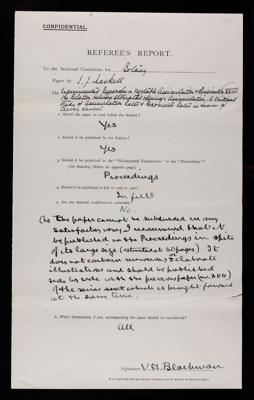 CONFIDENTIAL.
REFEREE'S REPORT.
To the Sectional Committee for Botany
Paper by E. J. Maskell
On Experimental Researches on Vegetable Assimilation & Respiration XVIII
The relation between stomatal opening & assimilation. A critical
study of assimilation rates & porometer rates in leaves of
cherry laurel.
1. Should the paper be read before the Society?
Yes
2. Should it be published by the Society?
Yes
3. Should it be published in the "Philosophical Transactions" or the "Proceedings"?
(See Standing Orders on opposite page.)
Proceedings
4. Should it be published in full or only in part?
In full
5. Are any material modifications necessary?
No
As the paper cannot be subdivided in any
satisfactory way, I recommend that it
be published in the Proceedings in spite
of its large size (estimated 50 pages). It
does not contain numerous or elaborate
illustrations and should be published
side by side with the previous paper (No. XVII)
of the series sent which is brought forward
at the same time.
6. Which illustrations, if any, accompanying the paper should be reproduced?
All
Signature V. H. Blackman